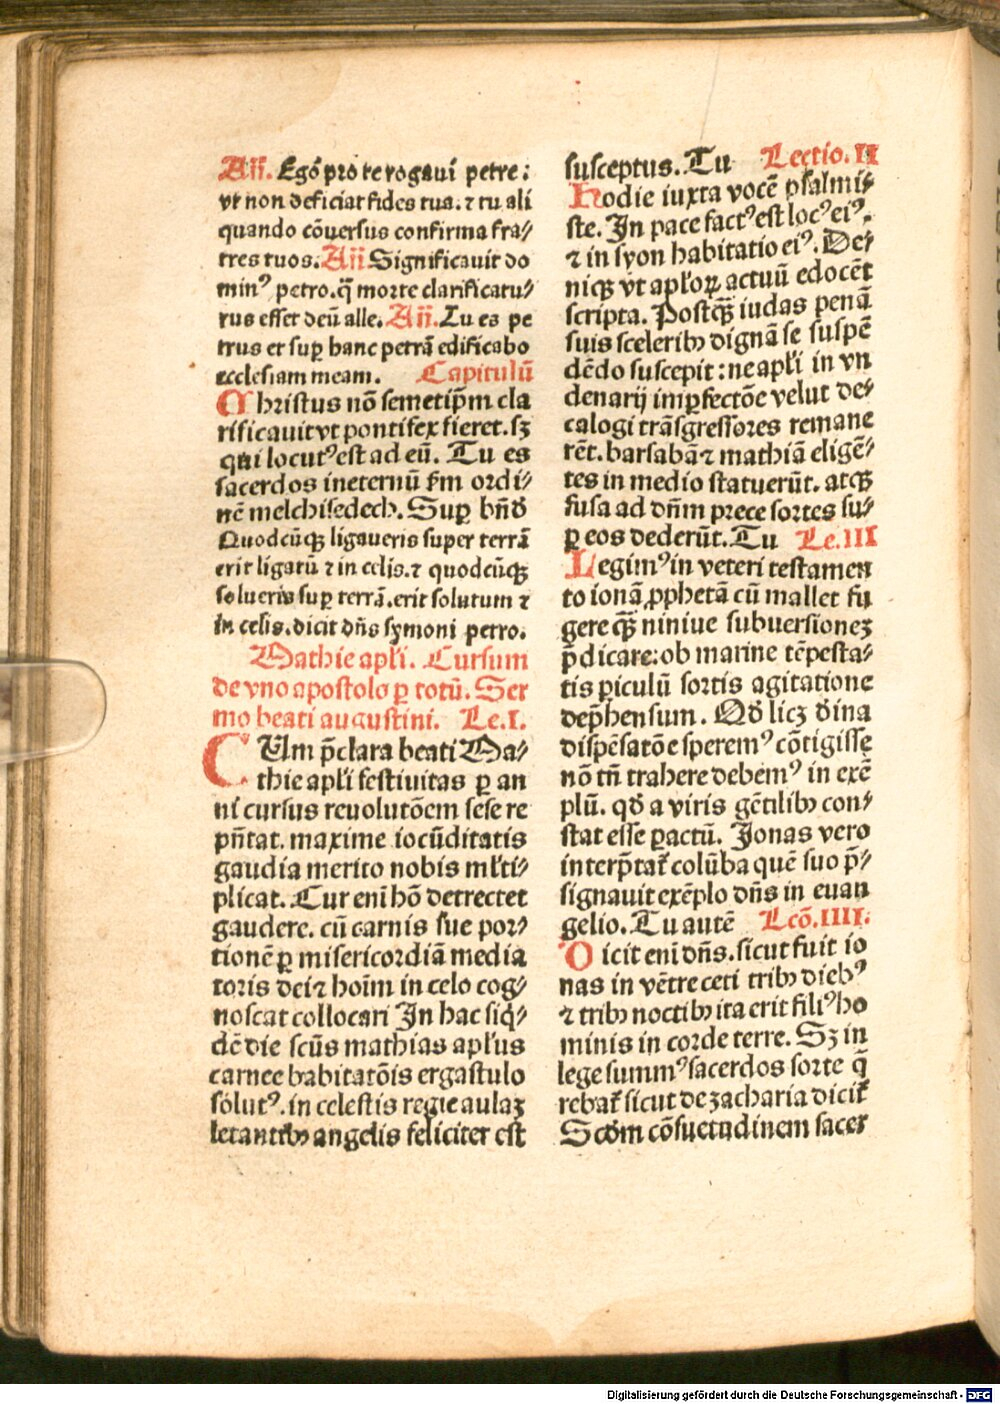 Añ. Egō pro te rogavi petre:
vt non deficiat fides tua. ⁊ tu ali
quando cōversus confirma fra⸗
tres tuos. Añ Significavit do
minꝰ petro. q̄ morte clarificatu⸗
rus esset deū alle. Añ. Tu es pe
trus et suꝑ hanc petrā edificabo
ecclesiam meam. Capitulū
Christus nō semetip̄m cla
rificavit vt pontifex fieret. sꝫ
qui locutꝰ est ad eū. Tu es
sacerdos in eternū s̄m ordi⸗
nē melchisedech. Suꝑ bn̄d̄
Quodcūqꝫ ligaveris super terrā
erit ligatū ⁊ in celis. ⁊ quodcūqꝫ
solueris suꝑ terrā. erit solutum ⁊
in celis. dicit dn̄s symoni petro.
Mathie apl̄i. Cursum
de vno apostolo ꝑ totū. Ser
mo beati augustini. Le. I.
CUm p̄clara beati Ma⸗
thie apl̄i festivitas ꝑ an
ni cursus revolutōem sese re
pn̄tat. maxime iocūditatis
gaudia merito nobis ml̄ti⸗
plicat. Cur eni hō detrectet
gaudere. cū carnis sue por⸗
tionē ꝑ misericordiā media
toris dei ⁊ hoim̄ in celo cog⸗
noscat collocari In hac siq̄⸗
dē die scūs mathias apl̄us
carnee habitatōis ergastulo
solutꝰ. in celestis regie aulaꝫ
letantibꝫ angelis feliciter est
susceptus. Tu Lectio. II
Hodie iuxta vocē psalmi⸗
ste. In pace factꝰ est locꝰ eiꝰ.
⁊ in syon habitatio eiꝰ. De⸗
niqꝫ vt apl̄oꝝ actuū edocēt
scripta. Postqꝫ̄ iudas penā
suis sceleribꝫ dignā se suspē
dēdo suscepit: ne apl̄i in vn
denarij imꝑfectōe velut de⸗
calogi trāsgressores remane
rēt. barsabā ⁊ mathiā eligē⸗
tes in medio statuerūt. atqꝫ
fusa ad dn̄m prece sortes su⸗
ꝑ eos dederūt. Tu Le. III
Legimꝰ in veteri testamen
to ionā ꝓphetā cū mallet fu
gere qꝫ̄ ninive subversionez
p̄dicare: ob marine tēpesta⸗
tis ꝑiculū sortis agitatione
dep̄hensum. Qd̄ licꝫ d̄ina
dispēsatōe speremꝰ cōtigisse
nō tn̄ trahere debemꝰ in exē
plū. qd̄ a viris gētilibꝫ con⸗
stat esse ꝑactū. Jonas vero
interp̄tat̄ colūba quē suo p̄⸗
signavit exēplo dn̄s in evan
gelio. Tu autē Lcō. IIII.
Dicit eni dn̄s. sicut fuit io
nas in vētre ceti tribꝫ diebꝰ
⁊ tribꝫ noctibꝫ ita erit filiꝰ ho
minis in corde terre. Sꝫ in
lege summꝰ sacerdos sorte q̄
rebat̄ sicut de zacharia dicit̄
Scd̄m cōsuetudinem sacer